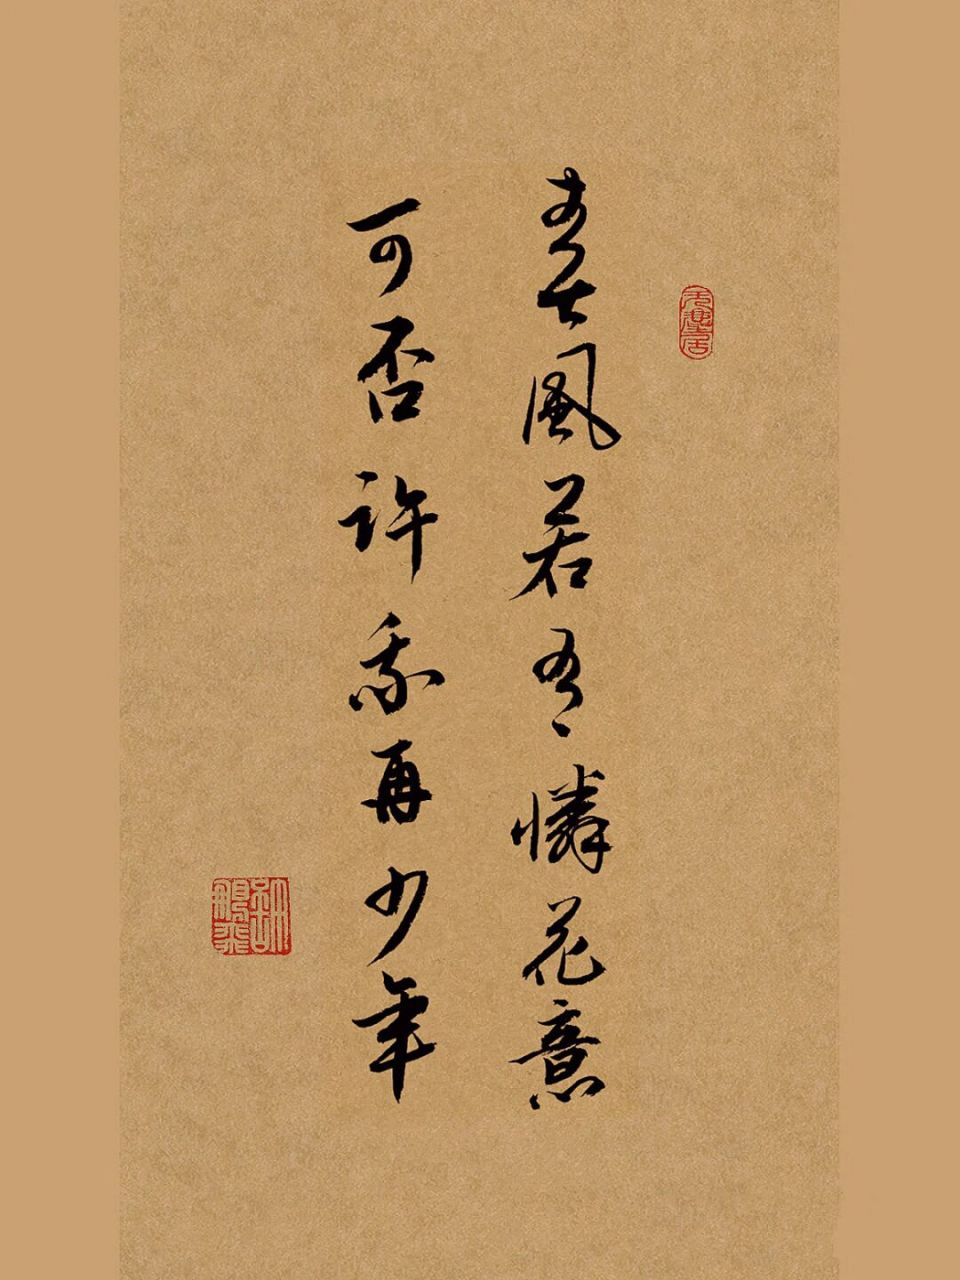 春風若有憐花意
可否許我再少年